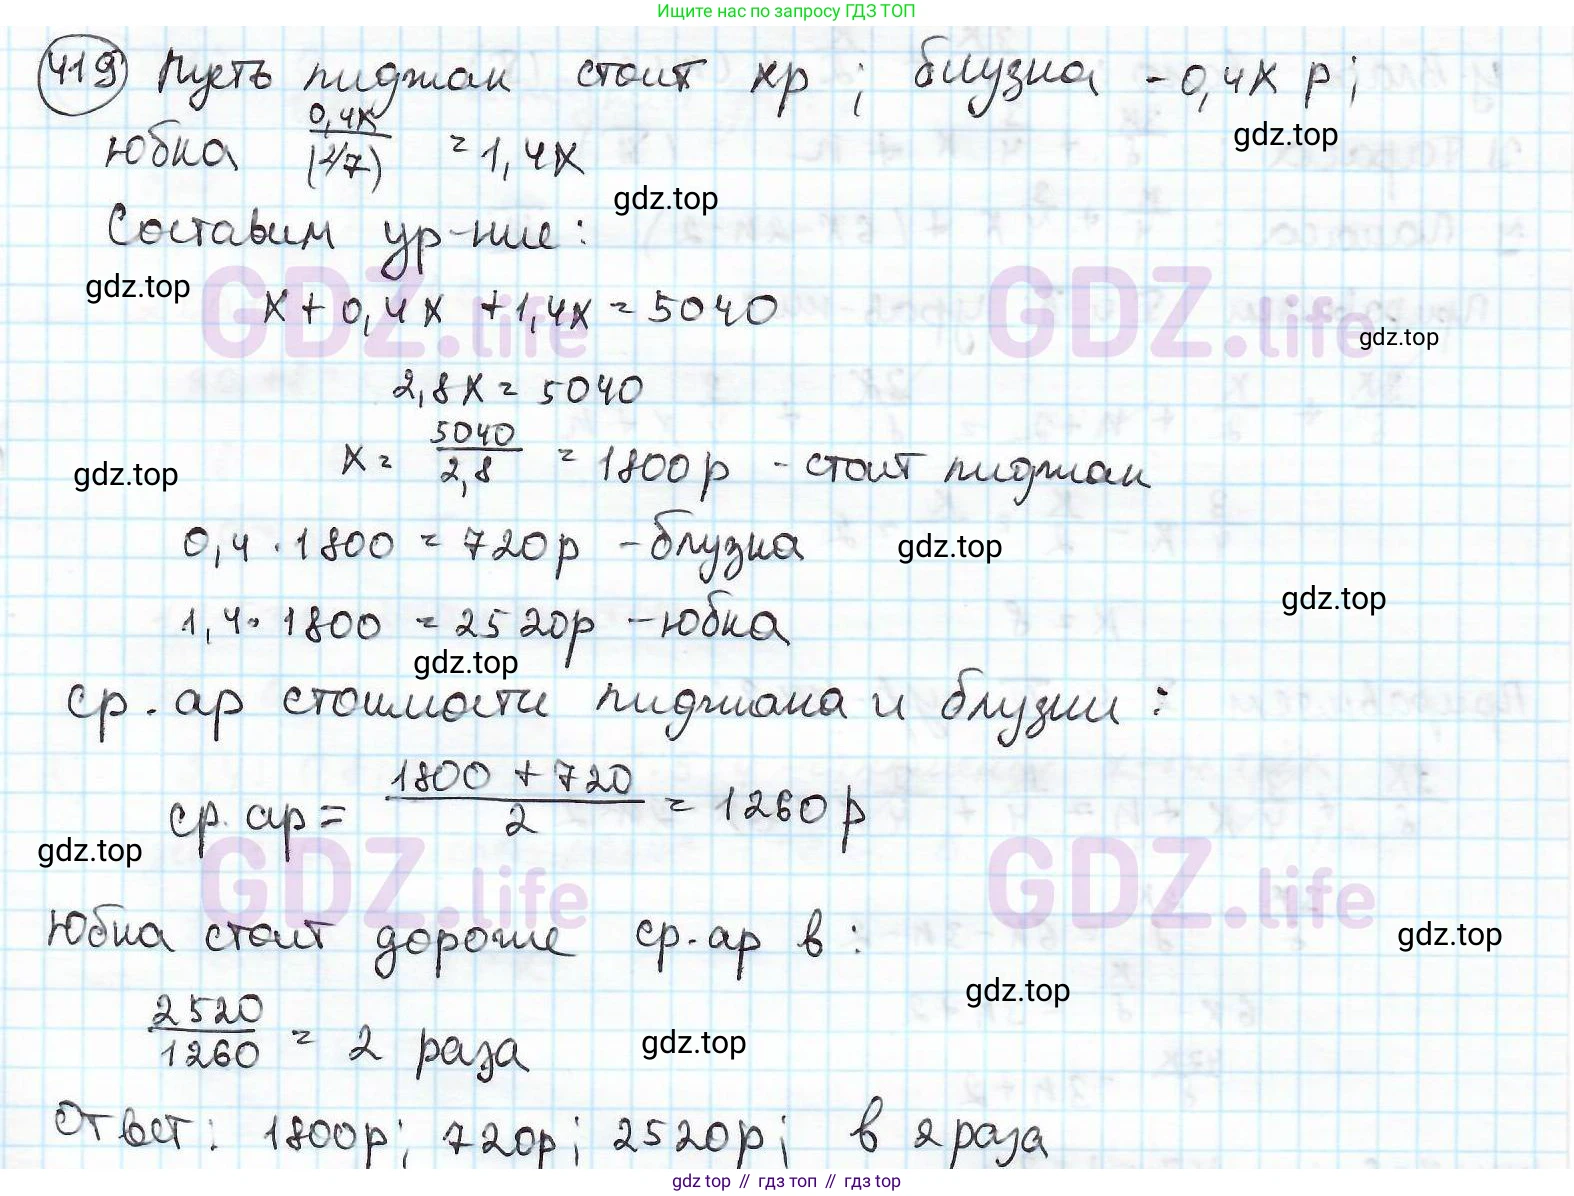 Ищите нас по запросу ГДЗ ТОП
419 Пусть пиджак стоит х р ; блузка - 0,4х р ;
gdz.top
юбка 0,4х/(2/7) = 1,4х
gdz.top
Составим ур-ние:
gdz.top
х + 0,4х + 1,4х = 5040
GDZ.life GDZ.life
gdz.top
2,8х = 5040
х = 5040/2,8 = 1800 р - стоит пиджак
gdz.top
0,4 · 1800 = 720 р - блузка
gdz.top
gdz.top
1,4 · 1800 = 2520 р - юбка
gdz.top
ср. ар стоимости пиджака и блузки :
ср. ар = (1800 + 720)/2 = 1260 р
gdz.top
GDZ.life GDZ.life
Юбка стоит дороже ср. ар в :
gdz.top
gdz.top
2520/1260 = 2 раза
gdz.top
Ответ: 1800р; 720р; 2520р; в 2 раза
gdz.top // гдз топ // гдз top